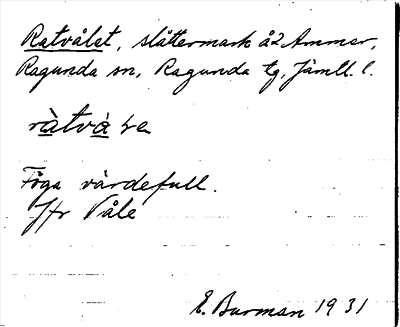 Ratvålet, slåttermark å 2 Ammer,
Ragunda sn, Ragunda tg, Jämtl. l.
ràtvà
Föga värdefull.
Jfr Våle
E. Burman 1931